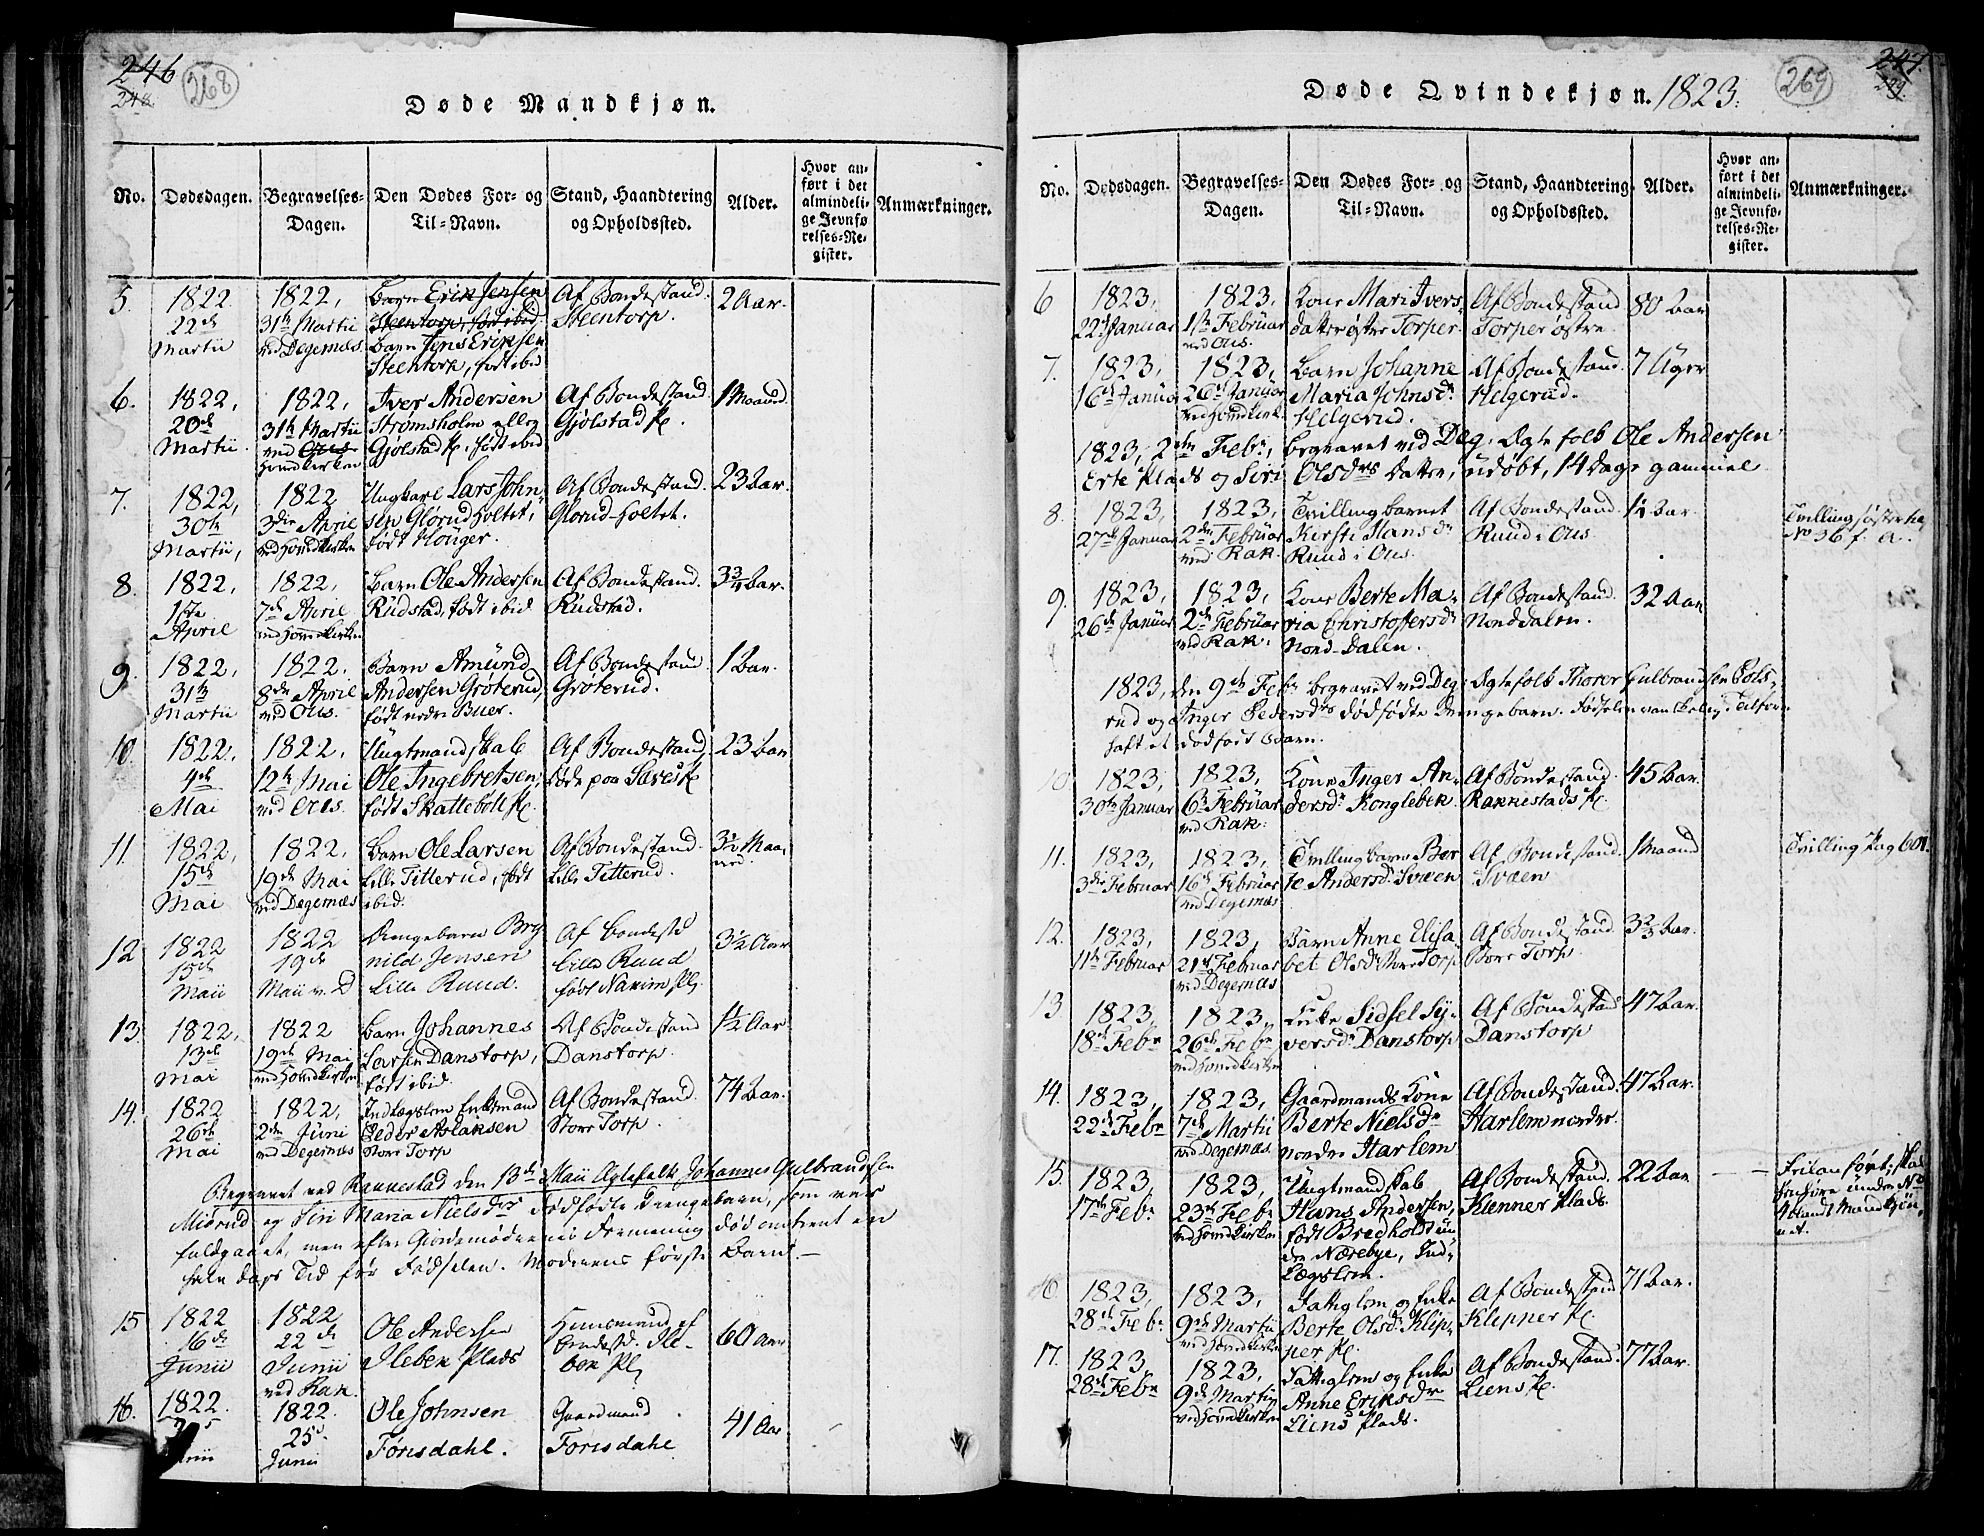 246
248
268
Døde Mandkjøn.
No.
Dødsdagen.
Begravelses-
Dagen.
Den Dødes For- og
Til-Navn.
Stand, Haandtering
og Opholdssted.
Alder.
Hvor an-
ført i det
almindeli-
ge Jevnfø
relses-Re-
gister.
Anmærkninger.
5.
1822
22de
Martii
1822,
31te Martii
ved Degernæs
Barn Erik Jensen
Steentorp, født ibid
Barn Jens Eriksen
Steentorp, født ibid
Af Bondestand.
Steentorp.
2 Aar.
6.
1822,
20de
Martii
1822,
31te Martii
ved Ous
Hovedkirken
Iver Andersen
Strømsholm eller
Gjølstad Pl. født ibid
Af Bondestand
Gjølstad Pl.
1 Maaned.
7.
1822,
30te
Martii,
1822
3die April
ved Hovedkirken
Ungkarl Lars John-
sen Glorud-Holtet,
født Houger.
Af Bondestand.
Glorud-Holtet.
23 Aar.
8.
1822,
1ste
April
1822,
7de April
ved Hovedkirken
Barn Ole Andersen
Rudstad, født ibid
Af Bondestand.
Rudstad.
3 3/4 Aar.
9.
1822,
31te
Martii
1822,
8de April
ved Ous.
Barn Amund
Andersen Grøterud,
født nedre Buer.
Af Bondestand
Grøterud.
1 Aar.
10.
1822,
4de
Mai
1822,
12te Mai
ved Ous.
Ungtmandskab
Ole Ingebretsen,
født Skattebøll Pl.
Af Bondestand,
døde paa Sæves Pl
23 Aar
11.
1822,
15de
Mai
1822,
19de Mai
ved Degernæs
Barn Ole Larsen
Lille Titterud, født
ibid.
Af Bondestand.
Lille Titterud.
3 1/2 Maa-
ned.
12
1822
15de
Maii
1822
19de
Maii v. D
Drengebarn Bry
nild Jensen
Lille Ruud.
Af Bondestd
Lille Ruud
født
3 1/2 Aar
13.
1822,
13de
Mai
1822
19de Mai
ved Hovedkirken
Barn Johannes
Larsen Danstorp,
født ibid.
Af Bondestand
Danstorp.
1 1/2 Aar
14.
1822
26de
Mai
1822,
2den Juni
ved Degernæs
Indlægslem Enkemand
Peder Aslaksen
Store Torp
Af Bondestand.
Store Torp.
74 Aar.
Begravet ved Rakkestad den 13de Maii Ægtefolk Johannes Gulbrandsen
Midrud og Siri Maria Nielsdrs dødfødte Drengebarn, som var
fuldgaaet, men efter Giordemødrenes Formening død omtrent en
halv dags Tid før Fødselen. Moderens første Barn.—
15
1822
16de
Junii
1822
22de
Junii
ved Rak.
Ole Andersen
Ileben Plads
Huusmand af
Bondestd. Ile-
ben Pl
60 Aar
16.
1822.
1822.
25d.
Junii
Ole Johnsen
Førisdahl.
Gaardmand
Forisdahl
41 Aar
Døde Qvindekjøn. 1823.
269
247.
249.
No.
Dødsdagen.
Begravelses-
Dagen.
Den Dødes For- og
Til-Navn.
Stand, Haandtering
og Opholdssted.
Alder.
Hvor an-
ført i det
almindeli-
ge Jevnfø-
relses-Re-
gister.
Anmærkninger.
6
1823,
22de Januar
1823,
1ste Februar
ved Ous.
Kone Mari Ivers-
datter østre Torper.
Af Bondestand
Torper østre.
80 Aar
7.
1823,
16de Januar
1823,
26de Januar
ved Hovedkirk.
Barn Johanne
Maria Johnsdr
Helgerud.
Af Bondestand.
Helgerud.
7 Uger
1823, 2den Febr., begravet ved Deg. Ægtefolk Ole Andersen
Erte Plads og Siri Olsdrs Datter, udøbt, 14 Dage gammel
8.
1823,
27de Januar
1823,
2den Februar
ved Rak.
Tvillingbarnet
Kirsti Hansdr
Ruud i Ous.
Af Bondestand
Ruud i Ous
1 1/4 Aar.
Tvillingsøster
No 36 f. a.
9.
1823,
26de Januar
1823,
2den Februar
ved Rak.
Kone Berte Ma-
ria Christophersdr
Nord-Dalen.
Af Bondestand.
Norddalen.
32 Aar
1823, den 9de Febr begravet ved Deg. Ægtefolk Thorer Gulbrandsen
rud og Inger Pedersdrs dødfødte Drengebarn. Fødselen vanskelig. Tilforn
haft et dødfødt Barn.
10
1823,
30te Januar
1823,
6te Februar
ved Rak.
Kone Inger An-
dersdr Konglebek.
Af Bondestand.
Rakkestads Pl.
45 Aar.
11.
1823,
3die Februar
1823,
16de Februar
ved Degernæs
Tvillingbarn Ber
te Andersdr Svæen
Af Bondestand.
Svæen
1 Maaned
Tvilling Pag 601.
12.
1823,
11te Februar
1823,
21de Februar
ved Degernæs
Barn Anne Elisa-
bet Olsdr Store Torp
Af Bondestand.
Store Torp.
3 2/3 Aar.
13
1823,
18de Febr
1823,
26de Febr
ved Hovedkirken
Enke Sidsel Sy-
versdr Danstorp
Af Bondestand
Danstorp
47 Aar.
14.
1823,
22de Febr
1823,
7de Martii
ved Degernæs.
Gaardmands Kone
Berte Nielsdr
nordre Harlem
Af Bondestand.
Harlem nordre.
47 Aar.
15.
1823,
17de Febr
1823,
23de Febr
ved Hovedkirken
Ungtmandskab
Hans Andersen,
født Bredholt un
der Nærebye, Ind-
lægslem.
Af Bondestand.
Klenner Plads.
22 Aar.
Feilanført, skal
henføre under No
iblandt Mandkjøn-
net.
16.
1823,
28de Febr
1823,
9de Martii
ved Hovedkirken
Fattiglem og Enke
Berte Olsdr Klip-
per Pl.
Af Bondestand
Klepper Pl
71 Aar.
17.
1823,
28de Febr
1823,
9de Martii
ved Hovedkirken
Fattiglem og Enke
Anne Eriksdr
Liens Plads.
Af Bondestand.
Liens Pl.
77 Aar.